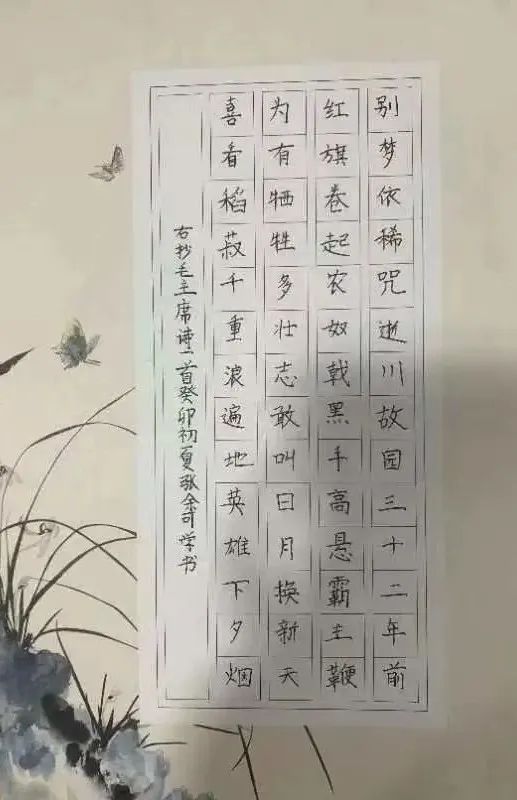 别梦依稀咒逝川故园三十二年前
红旗卷起农奴戟黑手高悬霸主鞭
为有牺牲多壮志敢叫日月换新天
喜看稻菽千重浪遍地英雄下夕烟
右抄毛主席诗一首癸卯初夏张余可学书